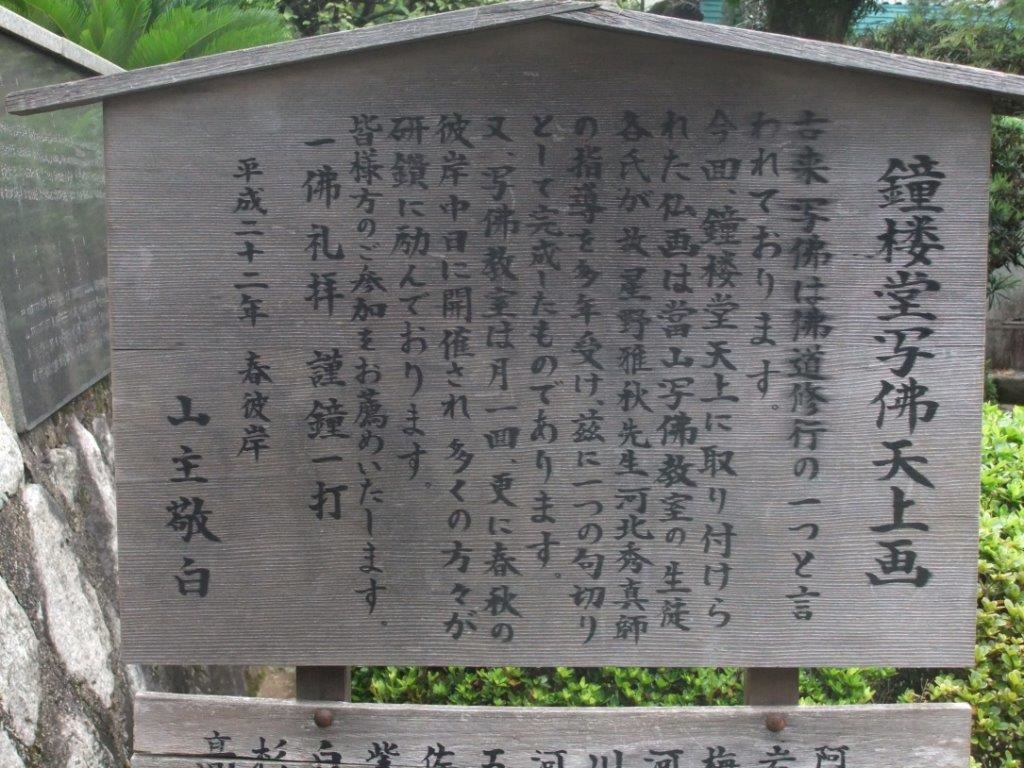 鐘楼堂写佛天上画
古来写佛は佛道修行の一つと言
われております。
今回、鐘楼堂天上に取り付けら
れた仏画は當山写佛教室の生徒
各氏が故星野雅秋先生河北秀真師
の指導を多年受け、茲に一つの句切り
として完成したものであります。
又、写佛教室は月一回、更に春秋の
彼岸中日に開催され多くの方々が
研鑽に励んでおります。
皆様方のご参加をお薦めいたします.
一佛礼拝 謹鐘一打
平成二十二年 春彼岸
山主敬白